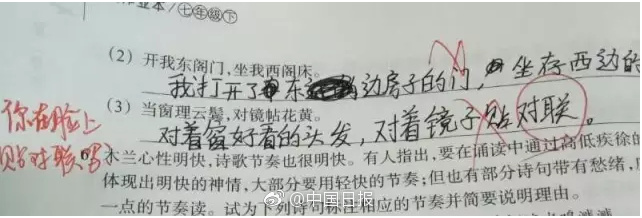 作业本/七年级下
(2) 开我东阁门,坐我西阁床。
我打开了东边房子的门,坐在西边的
(3) 当窗理云鬓,对镜帖花黄。
对着窗好看的头发,对着镜子贴对联。
你在脸上
贴对联
木兰心性明快,诗歌节奏也很明快。有人指出,要在诵读中通过高低疾徐的
体现出明快的神情,大部分要用轻快的节奏;但也有部分诗句带有愁绪,
一点的节奏读。试为下列诗句标注相应的节奏并简要说明理由。
@中国日报